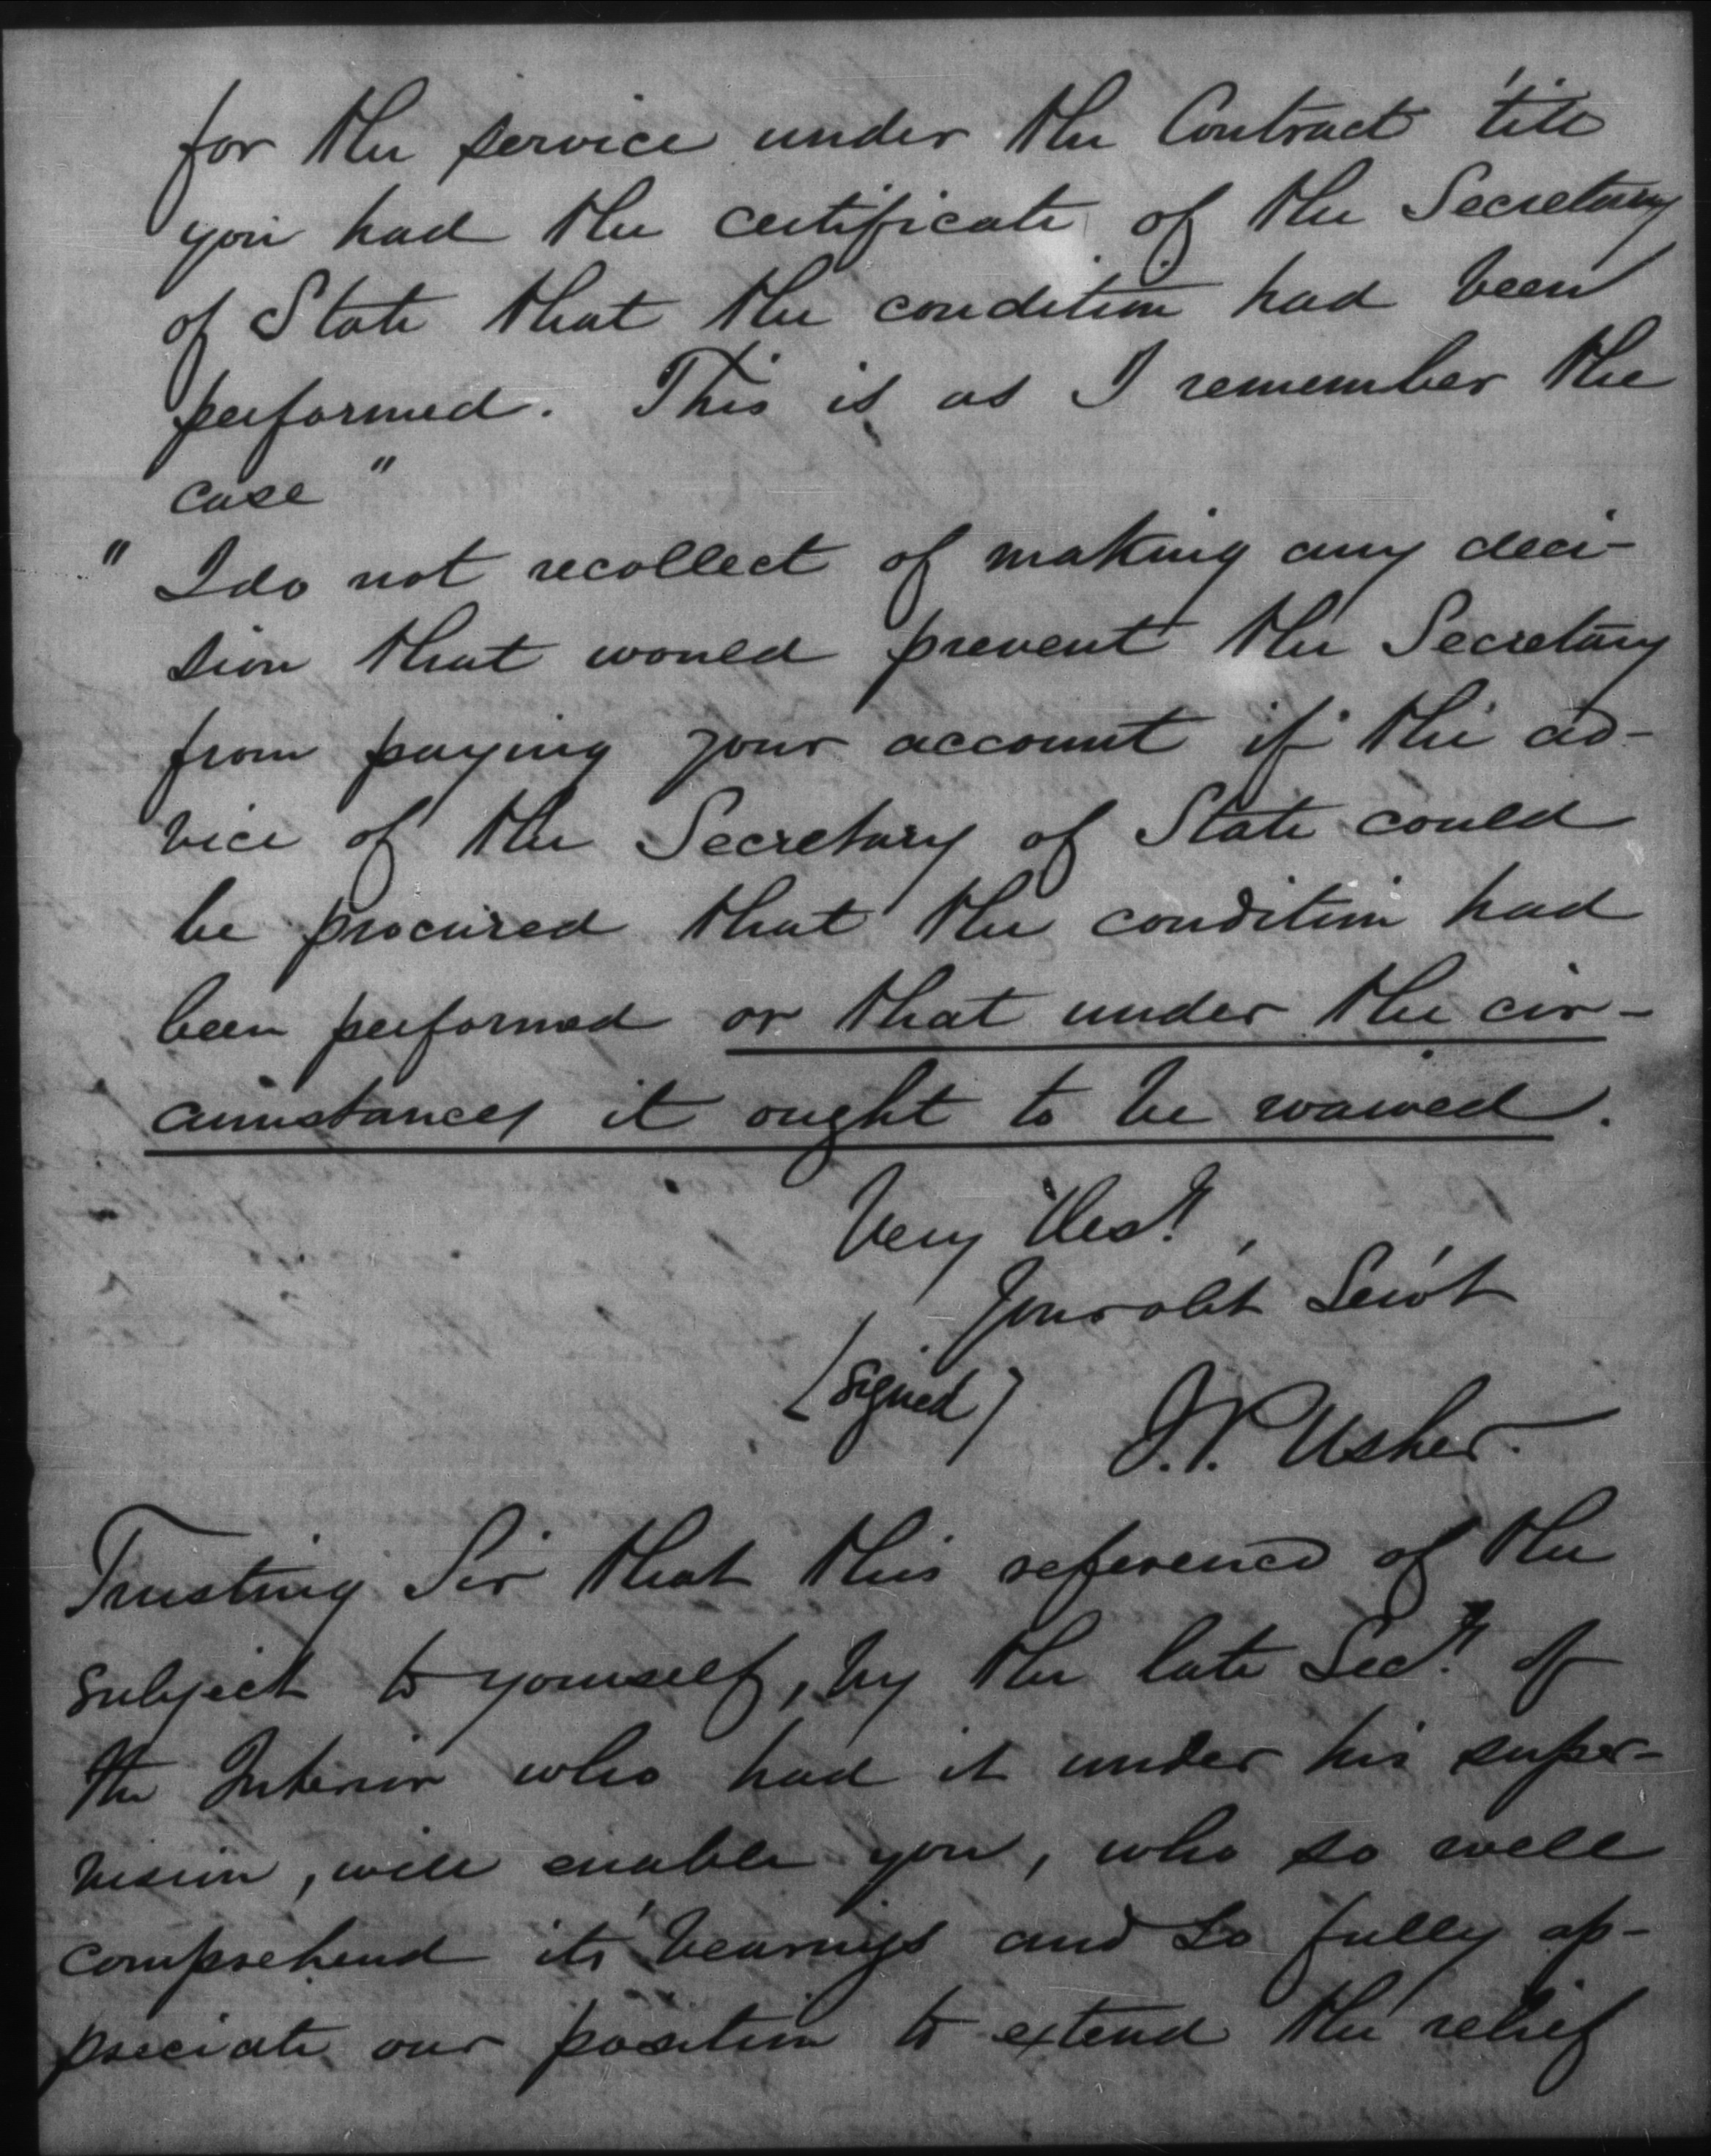 for the service under the Contract 'till
you had the certificate of the Secretary
of State that the condition had been
performed. This is as I remember the
case"
" I do not recollect of making any deci-
sion that would prevent the Secretary
from paying your account if the ad-
vice of the Secretary of State could
be procured that the condition had
been performed or that under the cir-
cumstances it ought to be waived.
Very Resy,
Your obt Servt
(signed)
J. P. Usher.
Trusting Sir that this reference of the
subject to yourself, by the late Secy of
the Interior who had it under his super-
vision, will enable you, who so well
comprehend its bearings and so fully ap-
preciate our position to extend the relief